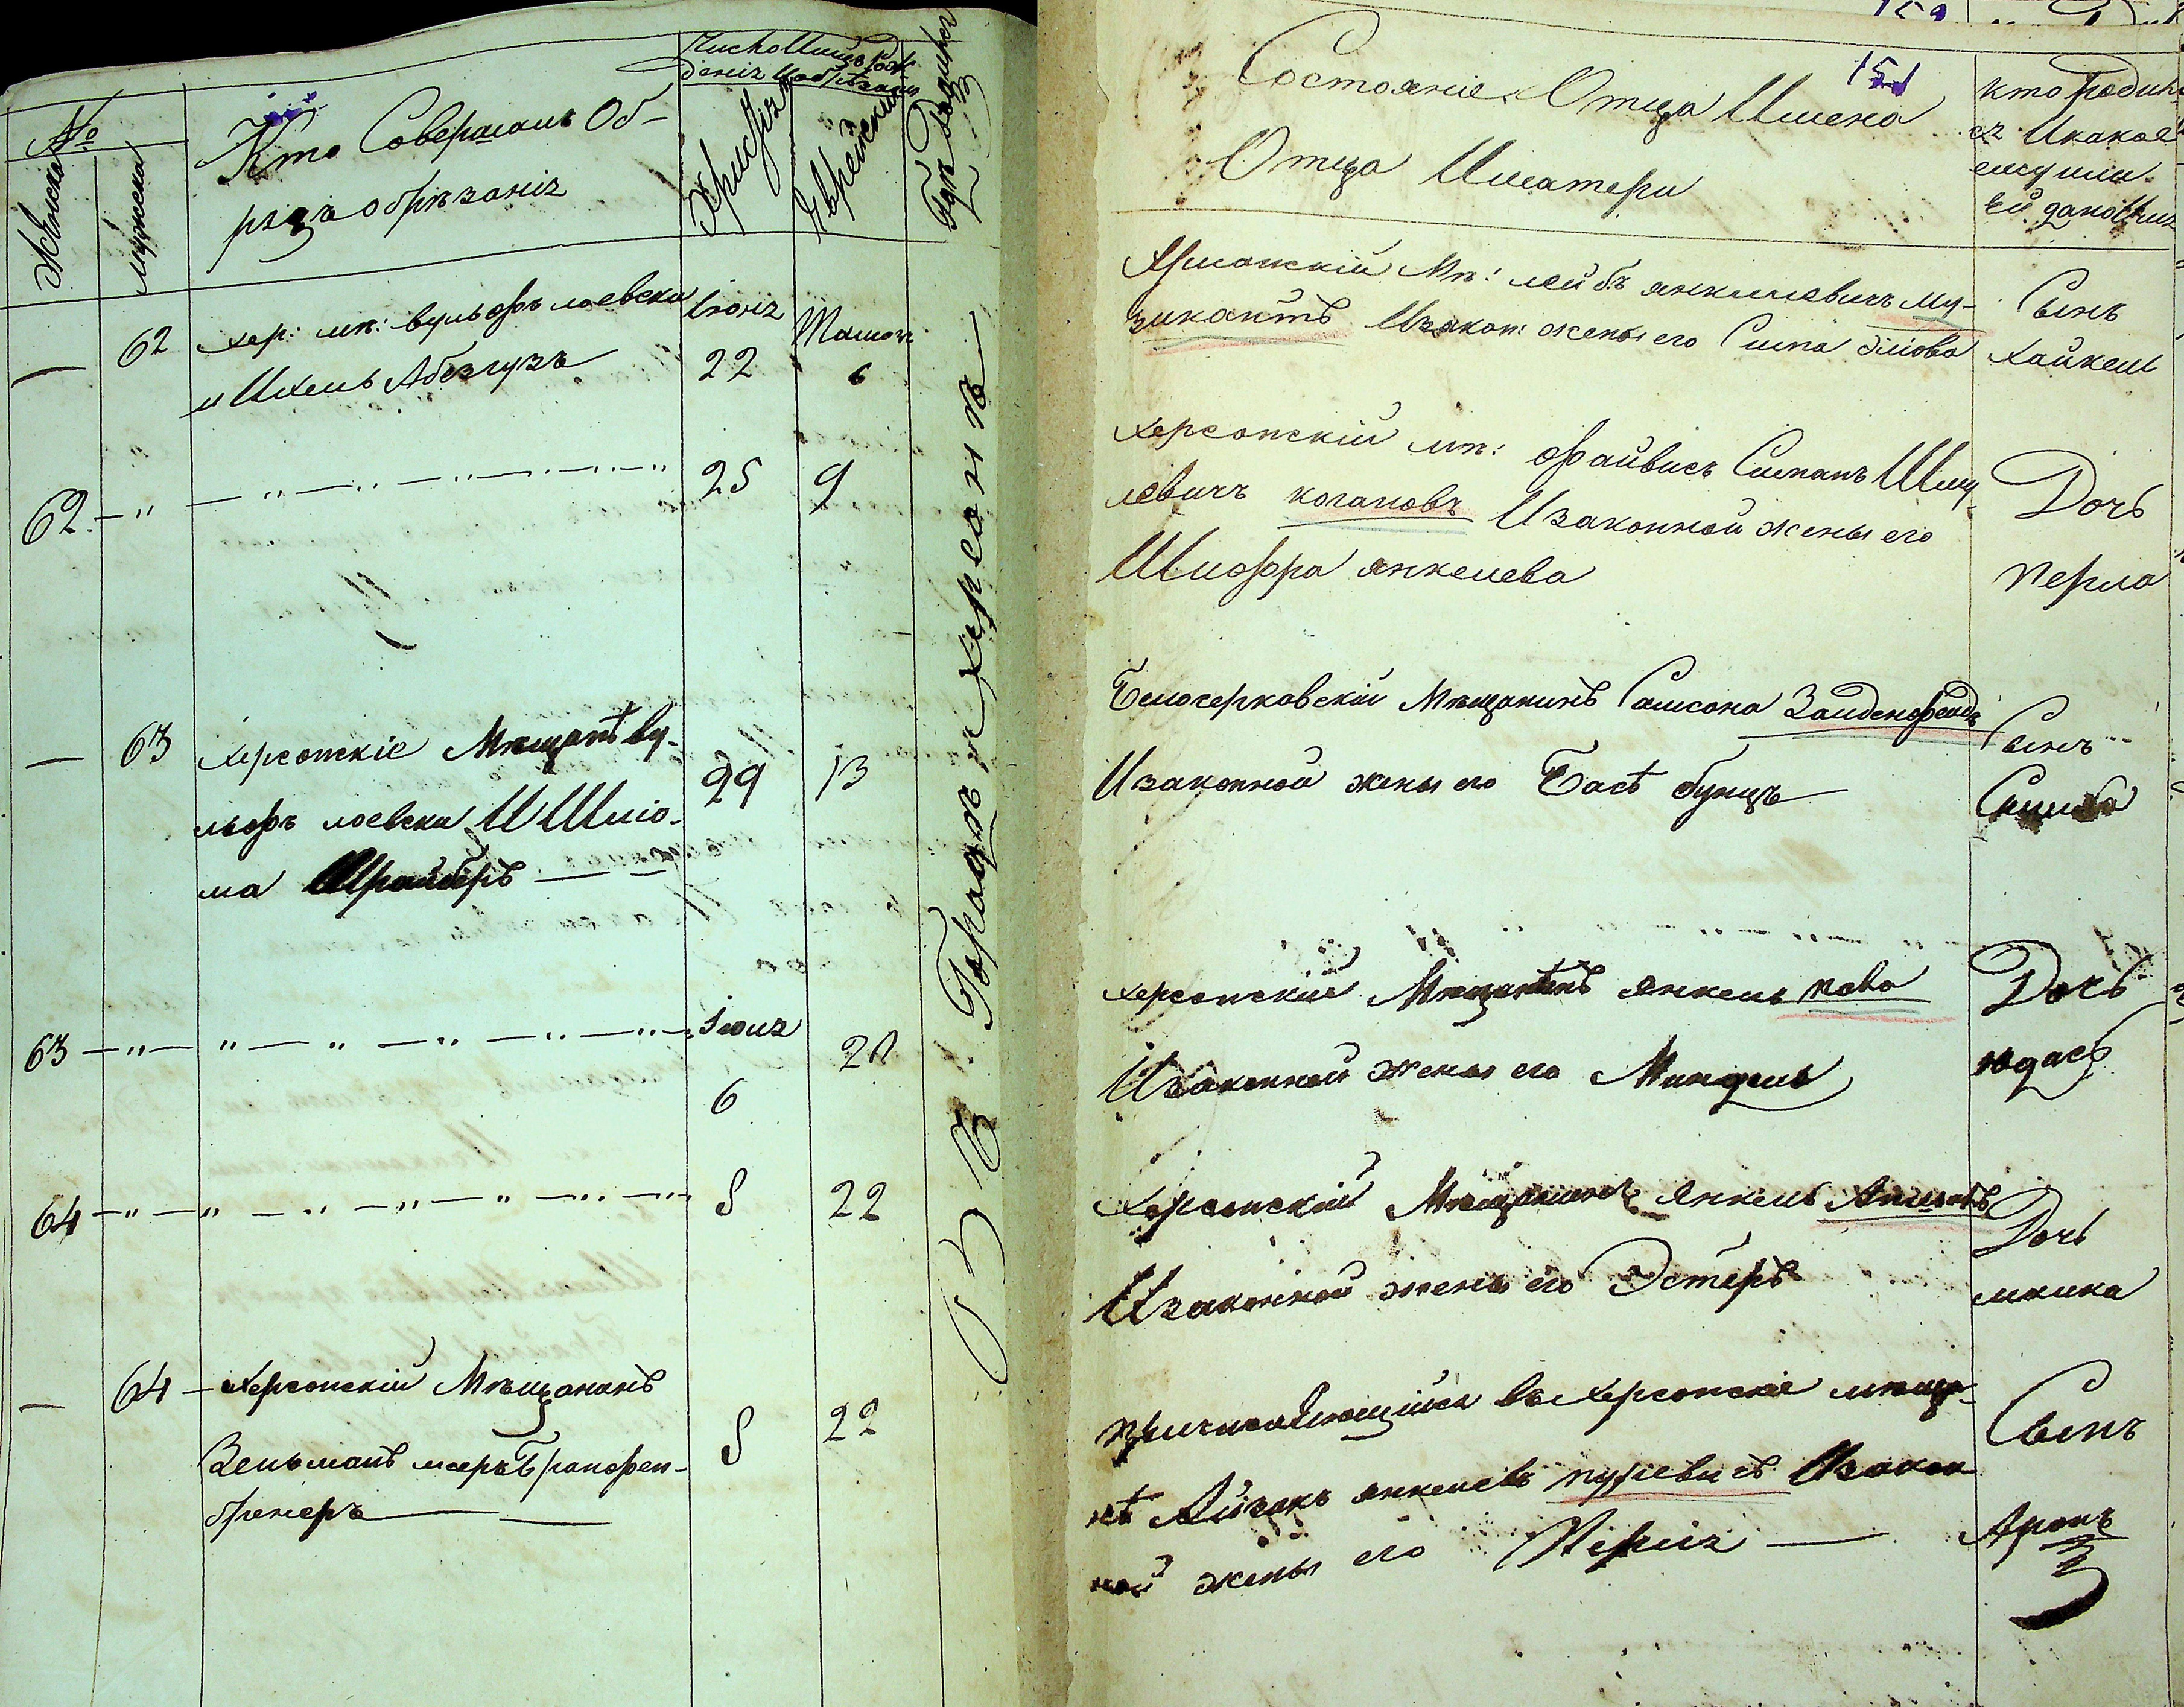 №
Женска
мужеска
Кто Совершалъ Об-
рядъ обрѣзанія
Число
Христіан
Еврейски
Гдѣ Родился
62 хер: мѣ: вульфъ лаевски
и Ихель Абезгузъ
Іюня
22
Тамоч
6
62
25 9
63 Херсонскіе Мѣщанѣ ву-
льфъ лаевски И Шлио-
ма Шрайберъ
29 13
63
Іюля
6
20
64
8 22
64 Херсонскій Мѣщанинъ
Зельманъ мееръ Гранфен-
бренеръ
8 22
Въ Городѣ Херсонѣ
151
Состояніе Отца Имена
Отца Иматери
Кто родил
ся Икакое
ему или
ей дано
мѣ: лейбъ янкилевичъ му-
зикантъ Изакон: жены его Сипа
Сынъ
Хайкель
Херсонскій мѣ: файвисъ Симанъ Шму-
левичъ когановъ Изаконной жены его
Шифра янкелева
Дочь
перла
Белочерковскій Мѣщанинъ Самсона Зайденфелдъ
Изаконной жены его Басѣ бунцъ
Сынъ
Симха
Херсонскій Мѣщанинъ янкель
Изаконной жены его Миндель
Дочь
юдась
Херсонскій Мѣщанинъ Янкель
Изаконной жены его Эстеръ
Дочь
малка
причисляющійся въ Херсонскіе мѣща-
нѣ Айзикъ янкелевъ Изакон
ной жены его Перля
Сынъ
Аронъ